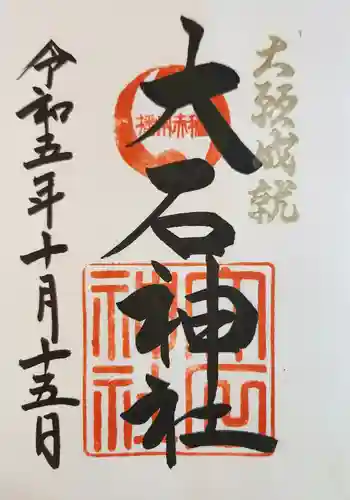 大願成就
大石神社
令和五年十月十五日